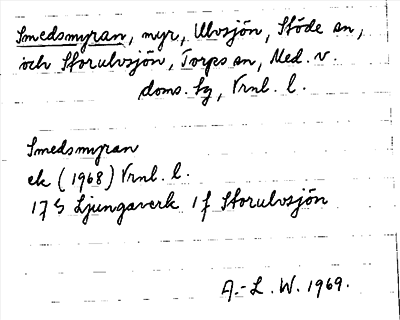 Smedsmyran, myr, Ulvsjön, Stöde sn,
och Storulvsjön, Torps sn, Med. v.
doms. sg, Vrnl. l.
Smedsmyran
ek (1968) Vrnl. l.
17 G Ljungaverk 1 f Storulvsjön
A.-L. W. 1969.